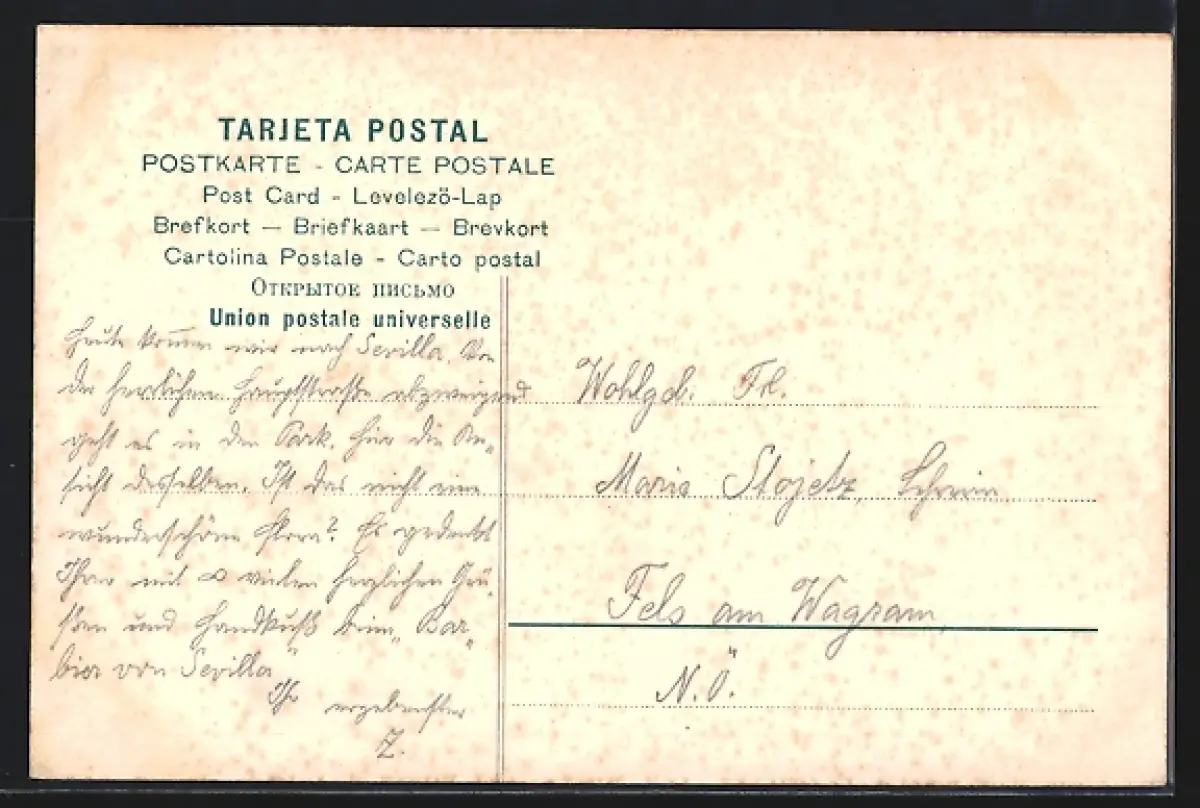 TARJETA POSTAL
POSTKARTE - CARTE POSTALE
Post Card - Levelezö-Lap
Brefkort — Briefkaart — Brevkort
Cartolina Postale - Carto postal
Открытое письмо
Union postale universelle
Heute kommen wir nach Sevilla. Von
der herrlichen Hauptstrasse abzweigend
geht es in den Park. Hier die An-
sicht desselben. Ist das nicht eine
wunderschöne Flora? Es gedenkt
Ihrer mit ∞ vielen herzlichen Grü-
ßen und Handkuß beim „Bar-
bier von Sevilla"
Ihr ergebenster
Z.
Wohlgeb. Frl.
Marie Stojetz, Lehrerin
Fels am Wagram
N.Ö.